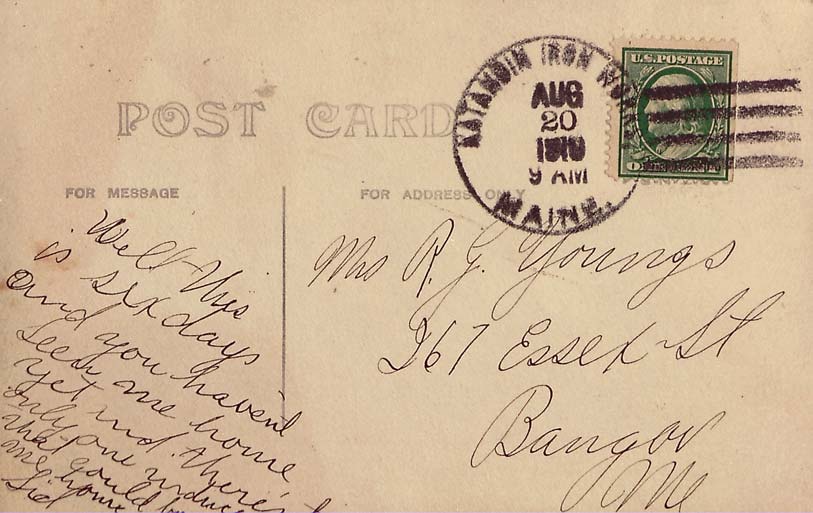 POST CARD
KATAHDIN IRON WORKS
AUG
20
1910
9 AM
MAINE.
U.S. POSTAGE
FOR MESSAGE
FOR ADDRESS ONLY
Well this
is six days
and you havent
seen me home
yet and there's
only one
that could
me home
Sid
Mrs R. G. Youngs
267 Essex St
Bangor
Me